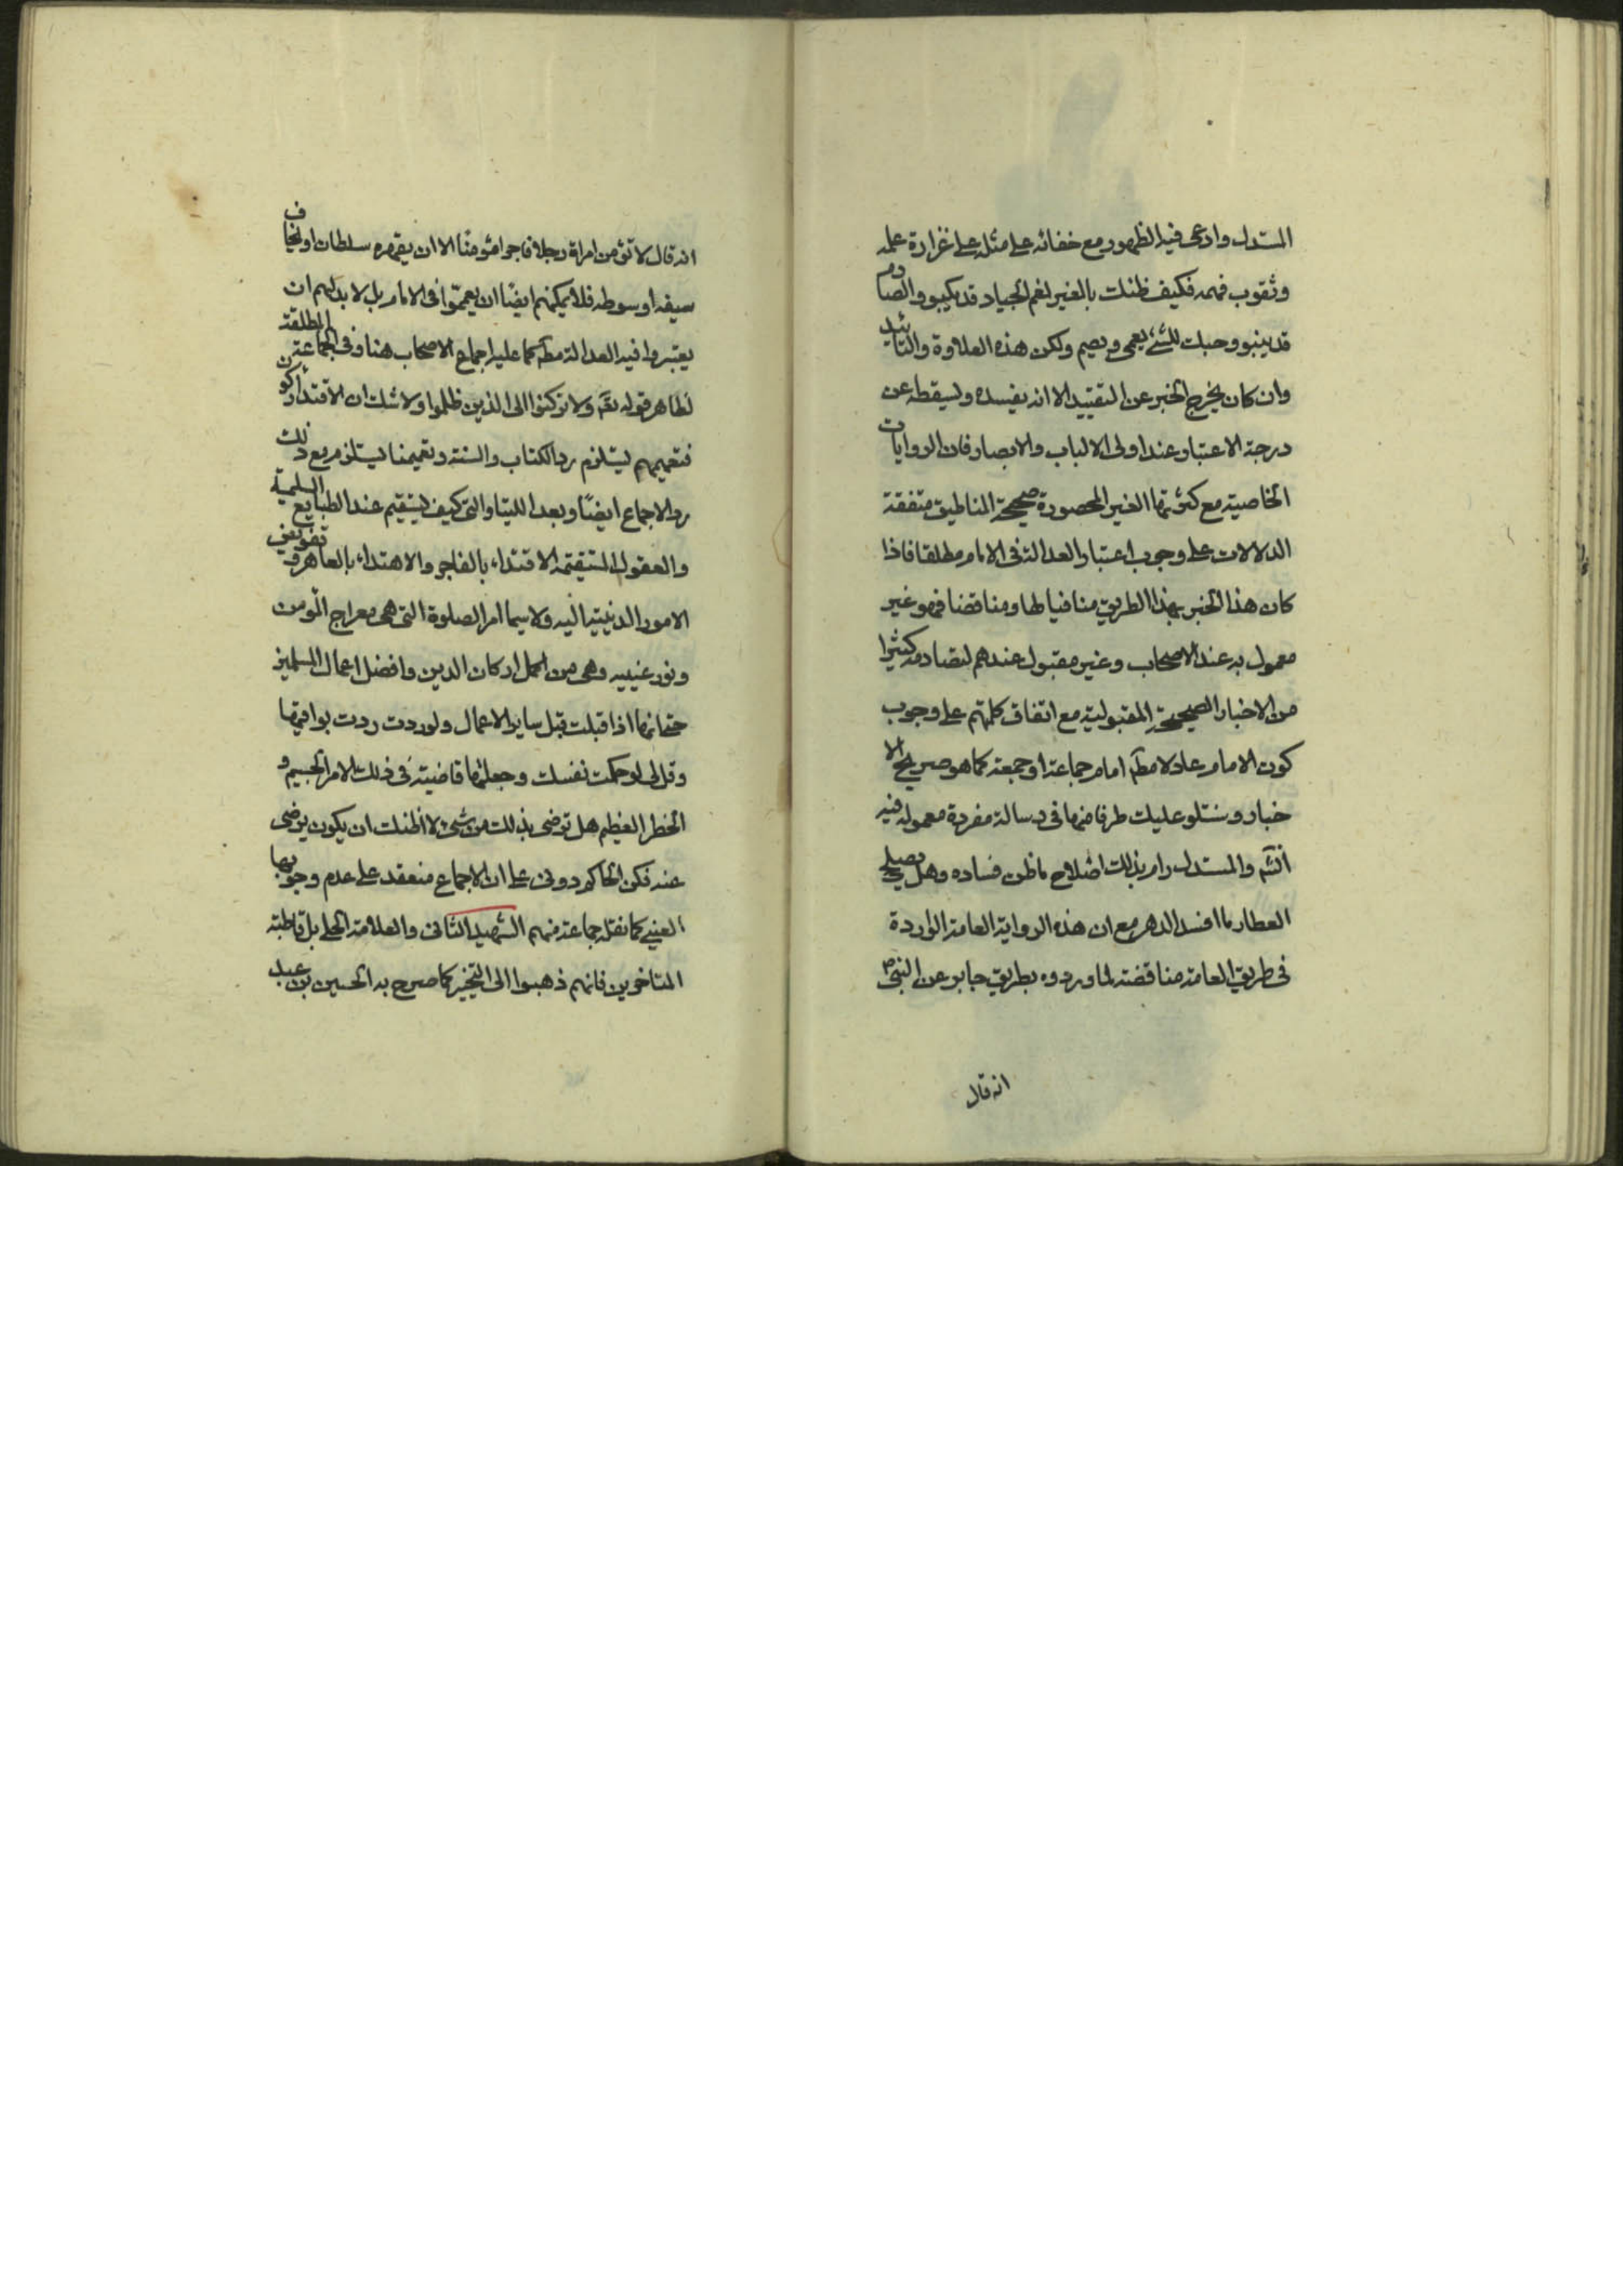 المستدل وادعى فيه الظهور مع خفائه على مثله على غزارة علمه
وثقوب فهمه فكيف ظنك بالغير نعم الجياد قد يكبو والصارم
قد ينبو وحبك للشئ يعمى ويصم ولكن هذه العلاوة والتائيد
وان كان يخرج الخبر عن التقييد الا انه يفسده ويسقطه عن
درجة الاعتبار عند اولى الالباب والابصار فان الروايات
الخاصية مع كثرتها الغير المحصورة صحيحة المناطيق متفقة
الدلالات على وجوب اعتبار العدالة فى الامام مطلقا فاذا
كان هذا الخبر بهذا الطريق منافيا لها ومناقضا فهو غير
معمول به عند الاصحاب وغير مقبول عندهم لتصادمه كثيرا
من الاخبار الصحيحة المقبولية مع اتفاق كلمتهم على وجوب
كون الامام عادلا مطم امام جماعة او جمعة كما هو صريح الا
خبار وسنتلو عليك طرفا منها فى رسالة مفردة معموله فيه
انشه والمستدل رام بذلك اصلاح ما ظن فساده وهل يصلح
العطار ما افسد الدهر مع ان هذه الرواية العامة الواردة
فى طريق العامة مناقضة لما وردوه بطريق جابر عن النبى ص
انه قال
انه قال لا تؤمن امراة رجلا ولا فاجر مؤمنا الا ان يقهره سلطان او يخاف
سيفه او سوطه فلا يمكنهم ايضا ان يعمموا فى الامام بل لا بد لهم ان
يعتبروا فيه العدالة مطم كما عليه اجماع الاصحاب هنا وفى الجماعة المطلقة
لظاهر قوله تعم ولا تركنوا الى الذين ظلموا ولا شك ان الاقتداء ركون
فتعميمهم يستلزم رد الكتاب والسنة وتعميمنا يستلزم مع ذلك
رد الاجماع ايضا وبعد اللتيا والتى كيف يستقيم عند الطبايع السليمة
والعقول المستقيمة الاقتداء بالفاجر والاهتداء بالعاهر وتفويض
الامور الدينية اليه ولا سيما امر الصلوة التى هى معراج المؤمن
ونور عينيه وهى من اكمل اركان الدين وافضل اعمال المسلمين
حتى انها اذا قبلت قبل ساير الاعمال ولو ردت ردت بواقيها
وقل لى لو حكمت نفسك وجعلتها قاضية فى ذلك الامر الجسيم و
الخطر العظيم هل ترضى بذلك من شئ لا اظنك ان يكون يرضى
عنه فكن الحاكم دونى على ان الاجماع منعقد على عدم وجوبها
العينى كما نقله جماعة منهم الشهيد الثانى والعلامة الحلى بل قاطبة
المتاخرين فانهم ذهبوا الى التخيير كما صرح به الحسين بن عبد